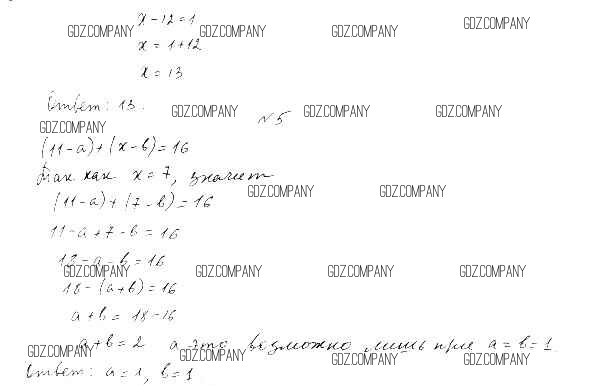 x - 12 = 1
GDZ.COMPANY GDZ.COMPANY GDZ.COMPANY GDZ.COMPANY
x = 1 + 12
x = 13
Ответ: 13.
GDZ.COMPANY GDZ.COMPANY GDZ.COMPANY
№5
GDZ.COMPANY
(11 - a) + (x - b) = 16
Так как x = 7, значит
GDZ.COMPANY GDZ.COMPANY
(11 - a) + (7 - b) = 16
11 - a + 7 - b = 16
18 - a - b = 16
GDZ.COMPANY GDZ.COMPANY GDZ.COMPANY GDZ.COMPANY
18 - (a + b) = 16
a + b = 18 - 16
a + b = 2 а это возможно лишь при a = b = 1
GDZ.COMPANY GDZ.COMPANY GDZ.COMPANY GDZ.COMPANY
Ответ: a = 1, b = 1.